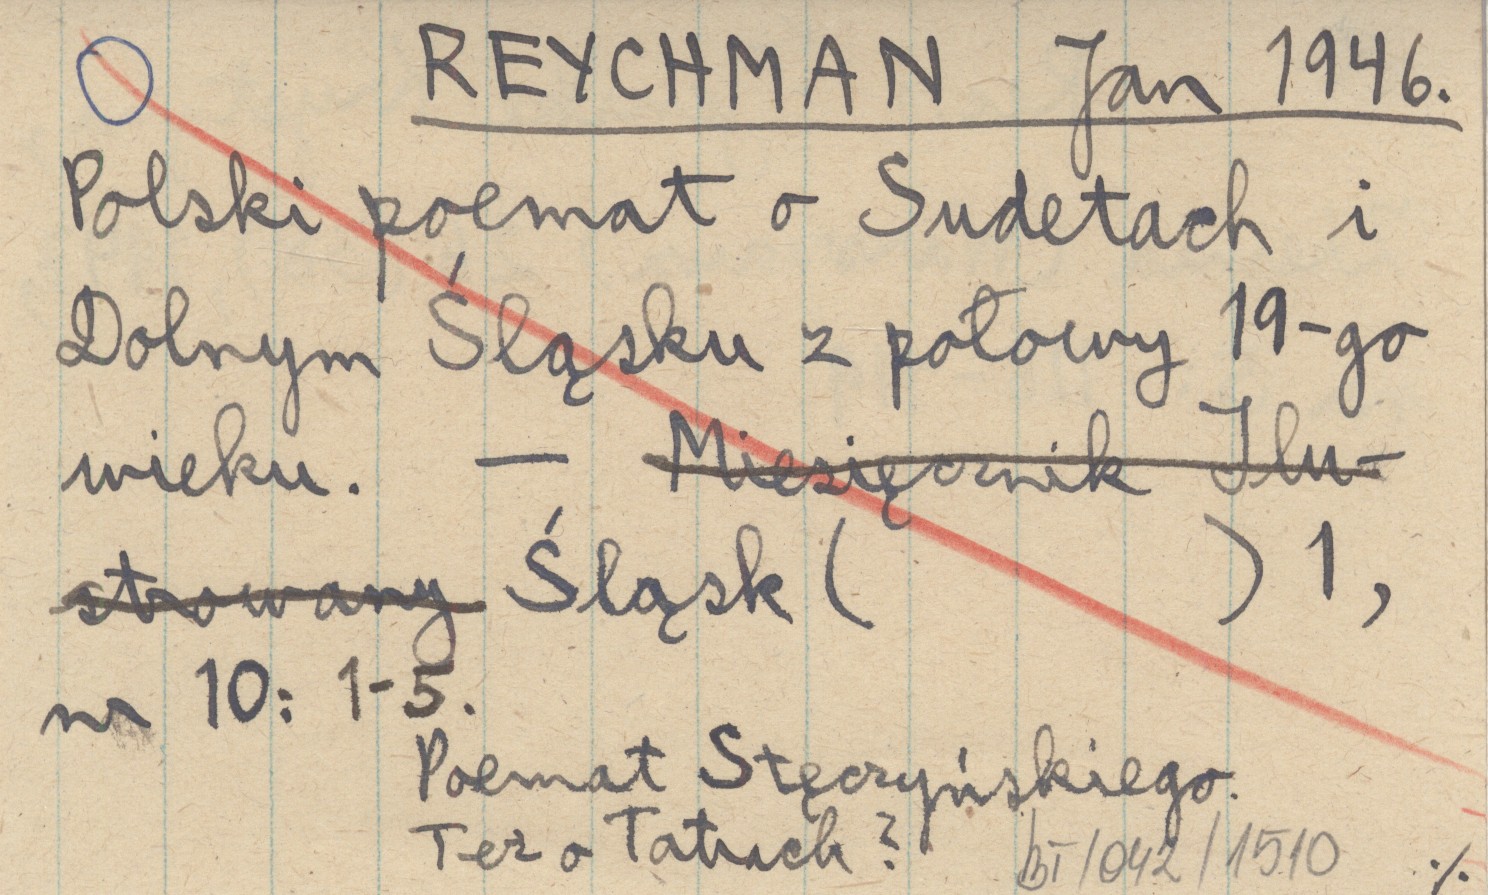 REYCHMAN Jan 1946.
Polski poemat o Sudetach i
Dolnym Śląsku z połowy 19-go
wieku. — Miesięcznik Ilu-
strowany Śląsk ( ) 1,
nr 10: 1-5.
Poemat Stęczyńskiego.
Też o Tatrach?
BT/042/1510 ·/.